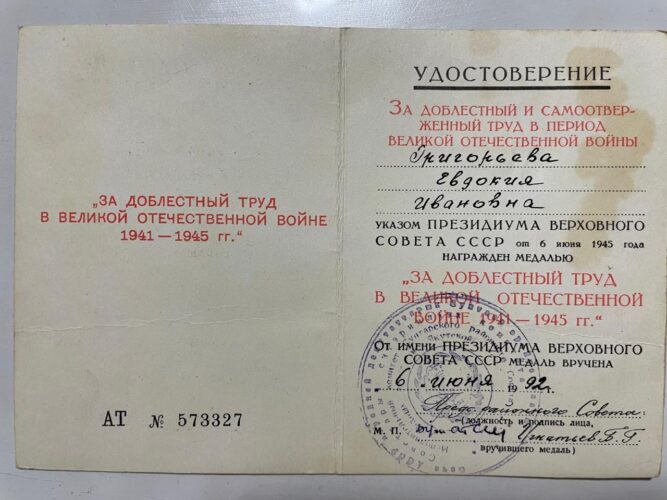 „ЗА ДОБЛЕСТНЫЙ ТРУД
В ВЕЛИКОЙ ОТЕЧЕСТВЕННОЙ ВОЙНЕ
1941 — 1945 гг.“
АТ № 573327
УДОСТОВЕРЕНИЕ
ЗА ДОБЛЕСТНЫЙ И САМООТВЕР-
ЖЕННЫЙ ТРУД В ПЕРИОД
ВЕЛИКОЙ ОТЕЧЕСТВЕННОЙ ВОЙНЫ
Григорьева
Евдокия
Ивановна
УКАЗОМ ПРЕЗИДИУМА ВЕРХОВНОГО
СОВЕТА СССР от 6 июня 1945 года
НАГРАЖДЕН МЕДАЛЬЮ
„ЗА ДОБЛЕСТНЫЙ ТРУД
В ВЕЛИКОЙ ОТЕЧЕСТВЕННОЙ
ВОЙНЕ 1941 — 1945 гг.“
От имени ПРЕЗИДИУМА ВЕРХОВНОГО
СОВЕТА СССР МЕДАЛЬ ВРУЧЕНА
6 июня 1992 г.
Пред. районного Совета
(должность и подпись лица,
М. П. Игнатьев
вручившего медаль)